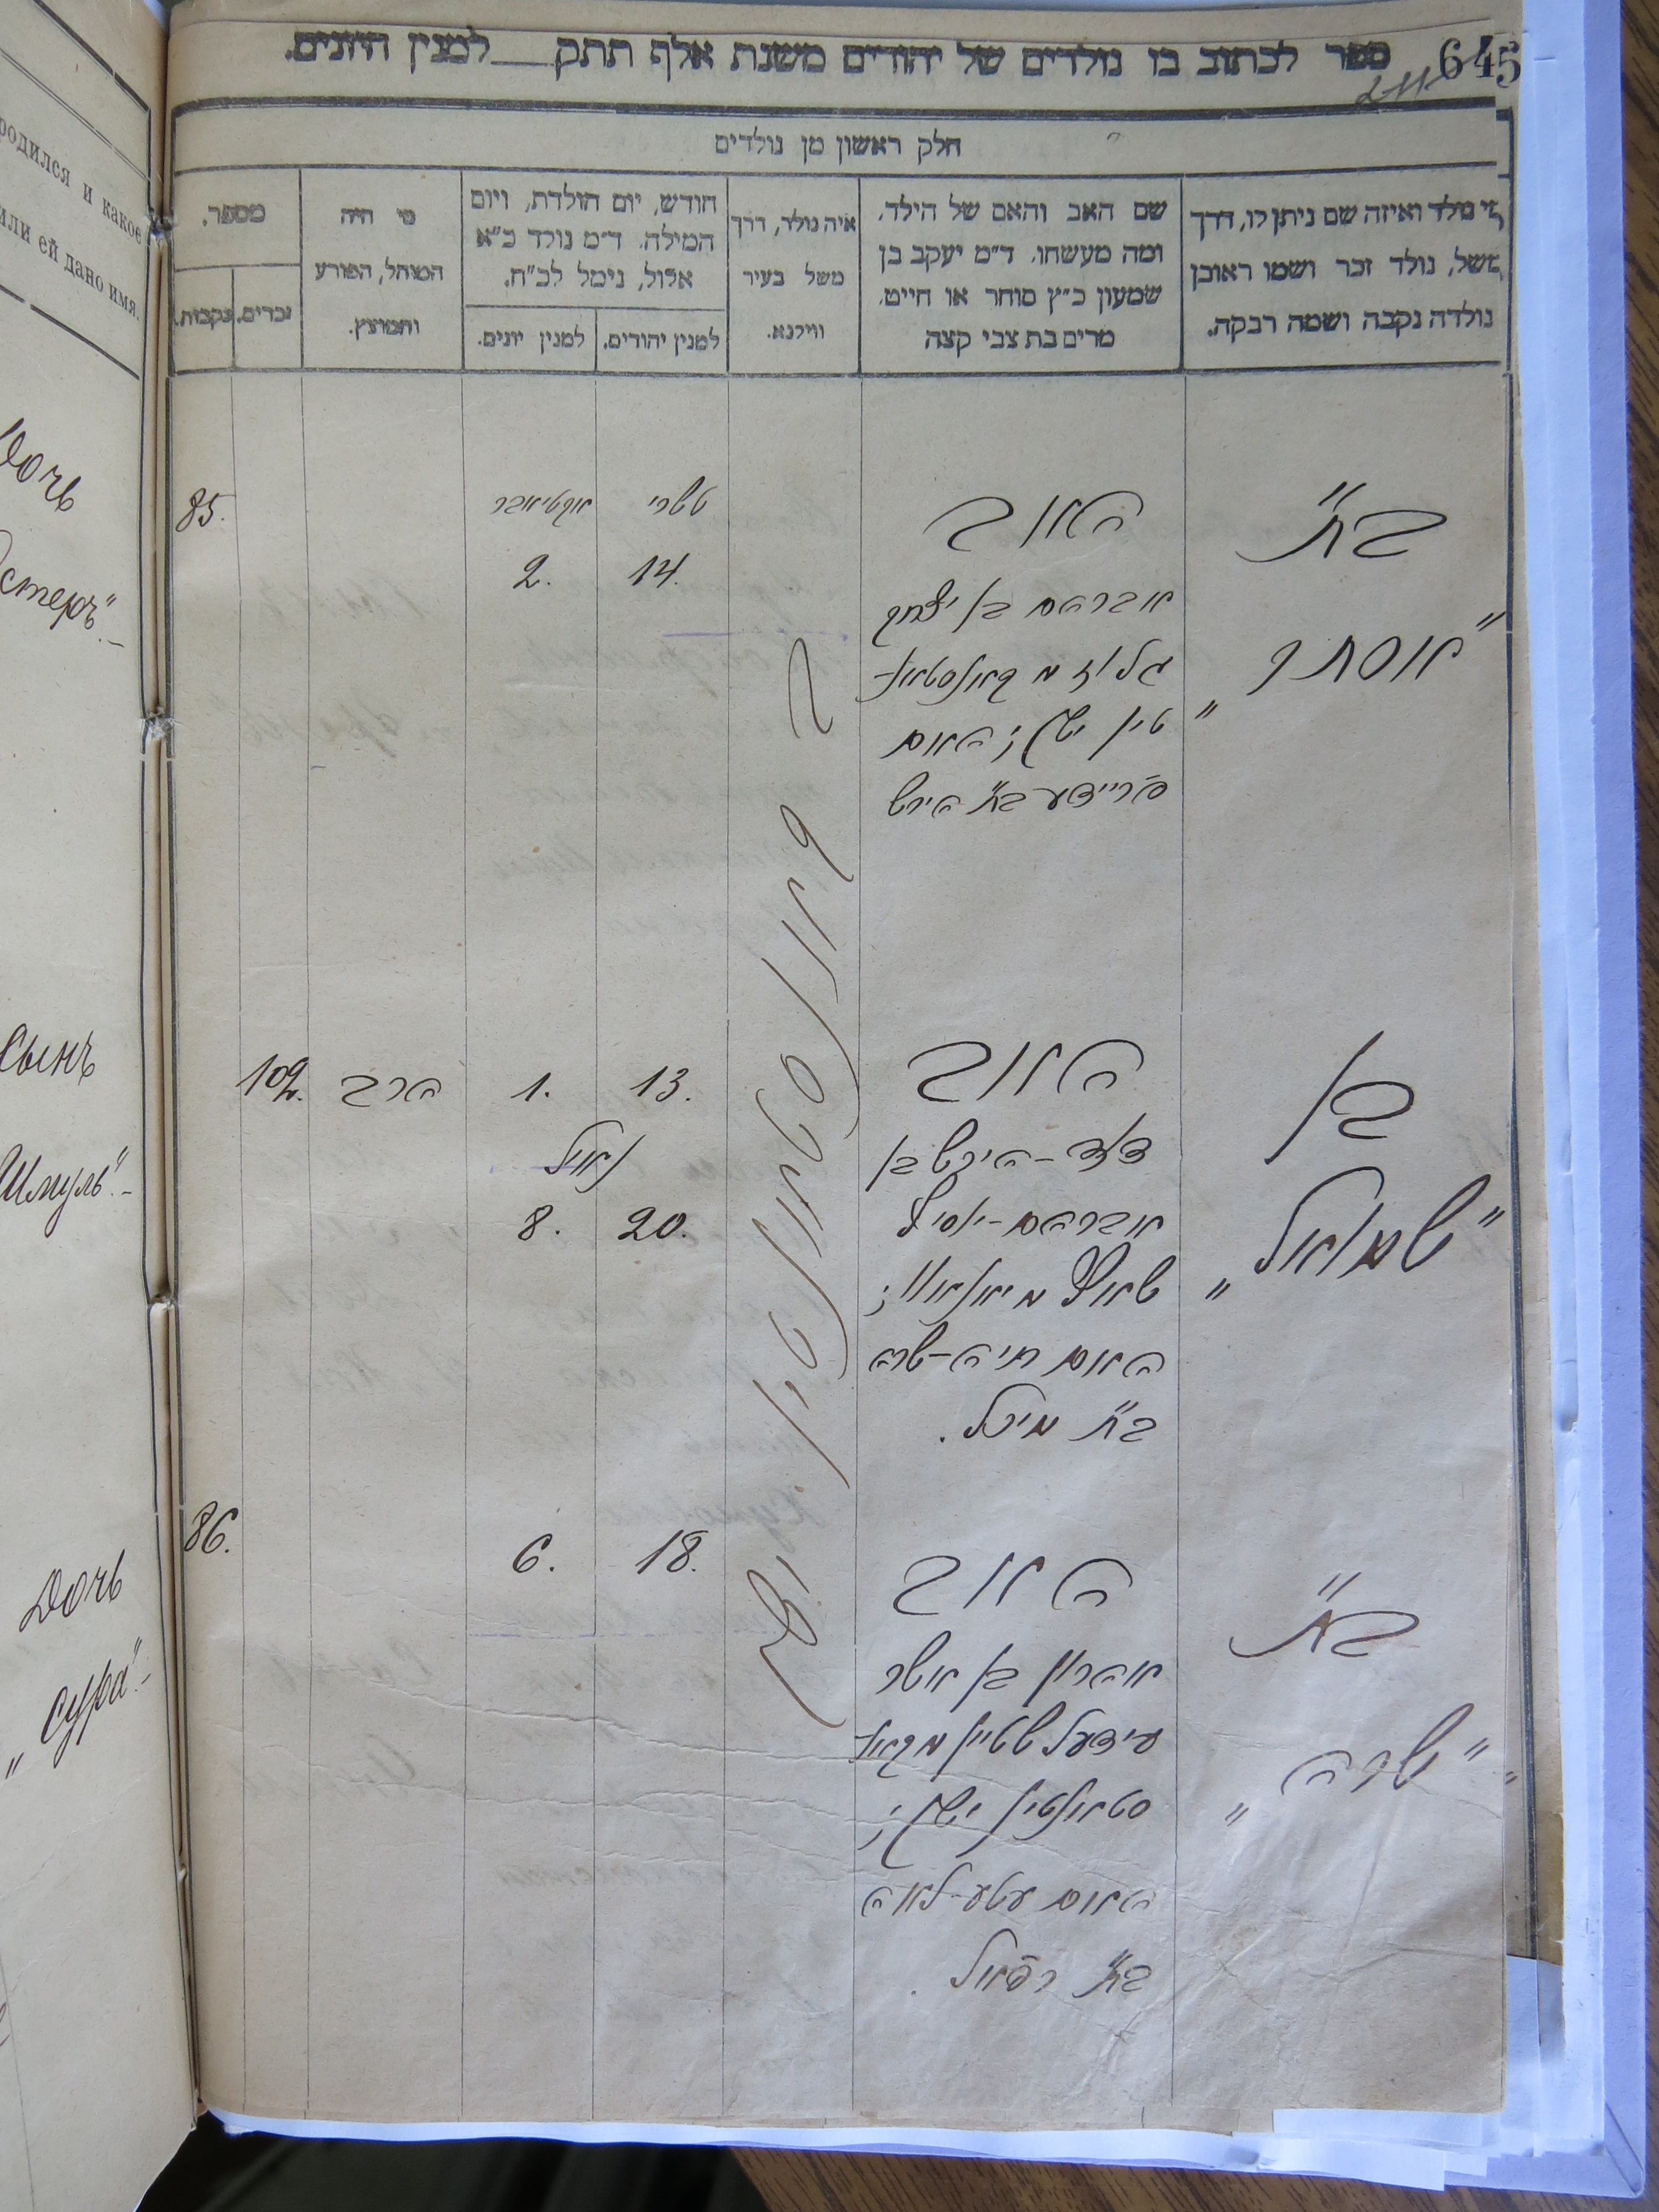 645
211
ספר לכתוב בו נולדים של יהודים משנת אלף תתק___למנין היונים.
חלק ראשון מן נולדים
מי נולד ואיזה שם ניתן לו, דרך
משל, נולד זכר ושמו ראובן
נולדה נקבה ושמה רבקה.
שם האב והאם של הילד,
ומה מעשהו. ד״מ יעקב בן
שמעון כ״ץ סוחר או חייט,
מרים בת צבי קצה
איה נולד, דרך
משל בעיר
ווילנא.
חודש, יום הולדת, ויום
המילה. ד״מ נולד כ״א
אלול, נימל לכ״ח.
למנין יהודים.
למנין יונים.
מי היה
המוהל, הפורע
והמוצץ.
מספר.
זכרים.
נקבות.
בת
"אסתר"
האב
אברהם בן יצחק
מקאנסטאנ-
טין ישן; האם
פריידע בת הירש
טשרי
14.
אקטיאבר
2.
85.
ב קאנסטאנטין ישן
בן
"שמואל"
האב
דוד-הירש בן
אברהם-יוסף
האם חיה-שרה
בת מיכל.
13.
1.
נימול
20.
8.
הרב
102.
בת
"שרה"
האב
אהרון בן אשר
עידעלשטיין מקאנ-
סטאנטין ישן;
האם עטע-לאה
בת רפאל.
18.
6.
86.
родился и какое
или ей дано имя.
Дочь
Сынъ
Шмуль"-
Дочь
„Сура"-